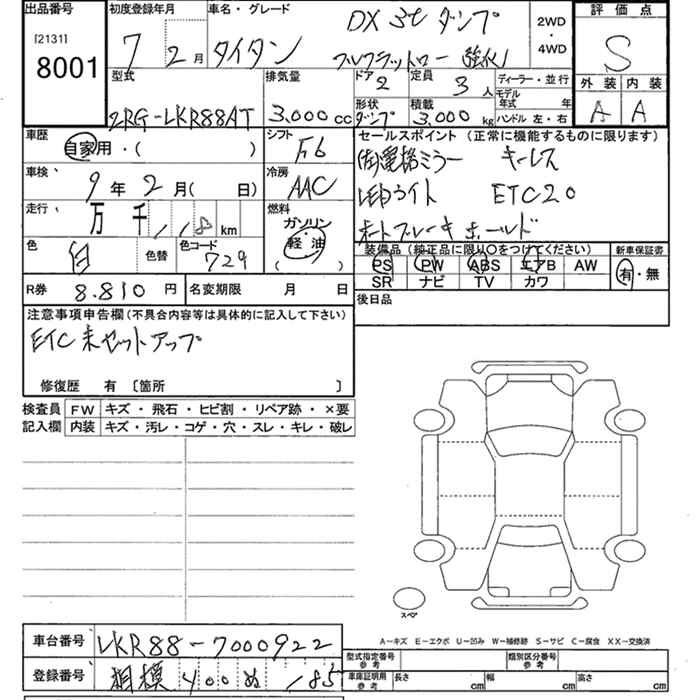 出品番号 初度登録年月 車名・グレード DX 3t ダンプ 2WD・4WD 評価点
[2131] 8001 7 2月 タイタン フルフラットロー 強化 S
型式 排気量 ドア 2 定員 3人 ディーラー・並行 外装 内装
モデル年式 年
2RG-LKR88AT 3.000cc 形状 ダンプ 積載 3.000kg ハンドル 左・右 A A
車歴 自家用・( ) シフト F6 セールスポイント(正常に機能するものに限ります)
(左)電格ミラー キーレス
車検 9年2月( 日) 冷房 AAC LEDライト ETC2.0
走行 万 千 118km 燃料 ガソリン 軽油 ( ) オートブレーキホールド
色 白 色替 色コード 729 装備品(純正品に限り○をつけてください) 新車保証書
PS PW ABS エアB AW 有・無
SR ナビ TV カワ
R券 8.810円 名変期限 月 日 後日品
注意事項申告欄(不具合内容等は具体的に記入して下さい)
ETC未セットアップ
修復歴 有 〔箇所 〕
検査員 FW キズ・飛石・ヒビ割・リペア跡・×要
記入欄 内装 キズ・汚レ・コゲ・穴・スレ・キレ・破レ
スペア
A-キズ E-エクボ U-凹み W-補修跡 S-サビ C-腐食 XX-交換済
車台番号 LKR88-7000922 型式指定番号 参考 類別区分番号 参考
登録番号 相模 400 ぬ 185 車庫証明用 参考 長さ cm 幅 cm 高さ cm